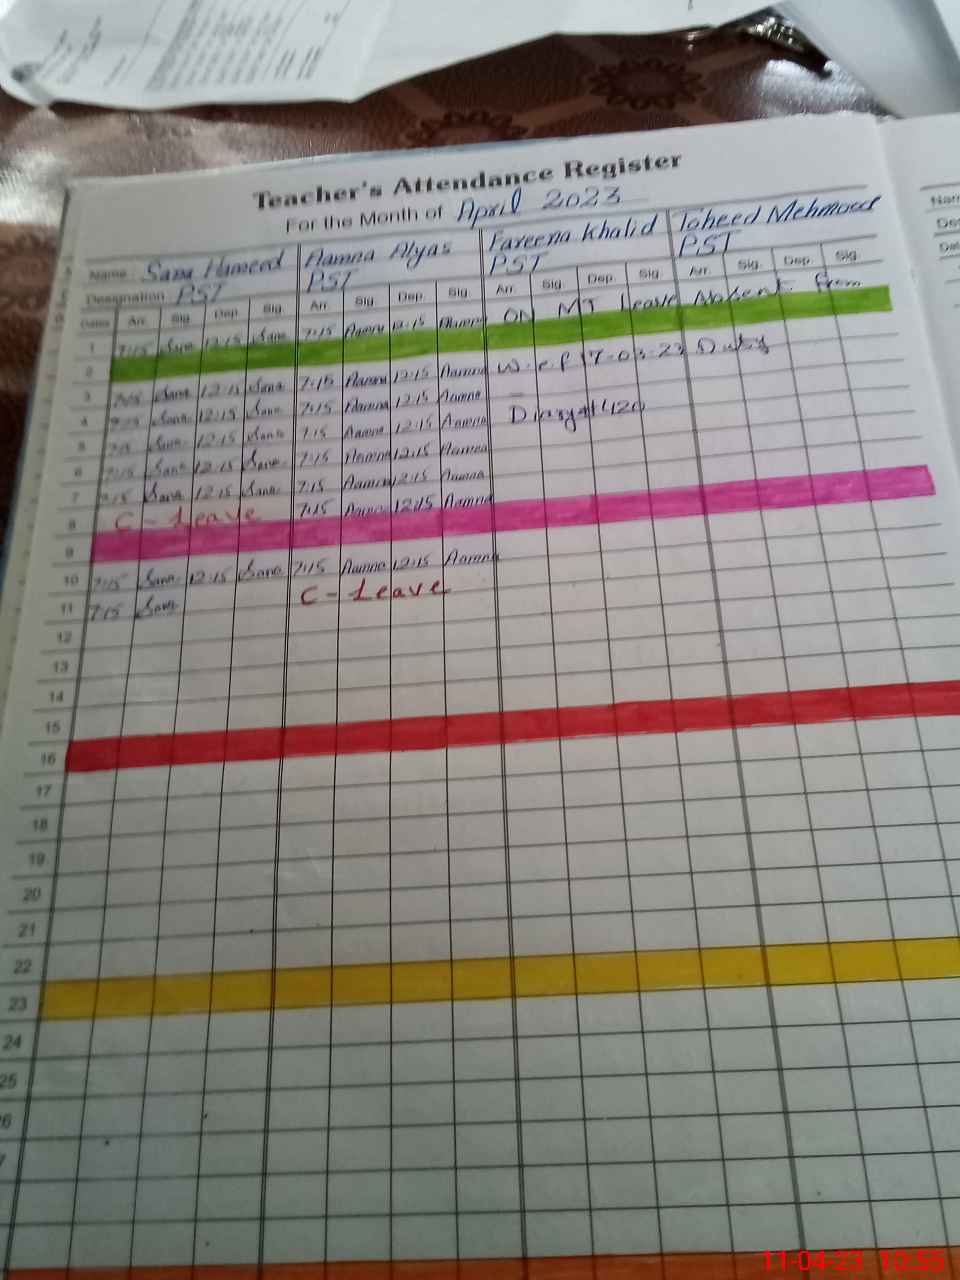 Teacher's Attendance Register
For the Month of April 2023
Name Sana Hameed Aamna Alyas Fareena Khalid Taheed Mehmood
Designation PST PST PST PST
Dates Arr. Sig. Dep. Sig. Arr. Sig. Dep. Sig. Arr. Sig. Dep. Sig. Arr. Sig. Dep. Sig.
1 7:15 Sana 12:15 Sana 7:15 Aamna 12:15 Aamna ON MT Leave Absent from
2
3 7:15 Sana 12:15 Sana 7:15 Aamna 12:15 Aamna W.e.f 17-03-23 Duty
4 7:15 Sana 12:15 Sana 7:15 Aamna 12:15 Aamna
5 7:15 Sana 12:15 Sana 7:15 Aamna 12:15 Aamna
6 7:15 Sana 12:15 Sana 7:15 Aamna 12:15 Aamna
7 7:15 Sana 12:15 Sana 7:15 Aamna 12:15 Aamna
8 C - Leave 7:15 Aamna 12:15 Aamna
9
10 7:15 Sana 12:15 Sana 7:15 Aamna 12:15 Aamna
11 7:15 Sana C - Leave
12
13
14
15
16
17
18
19
20
21
22
23
24
25
11-04-23 10:55